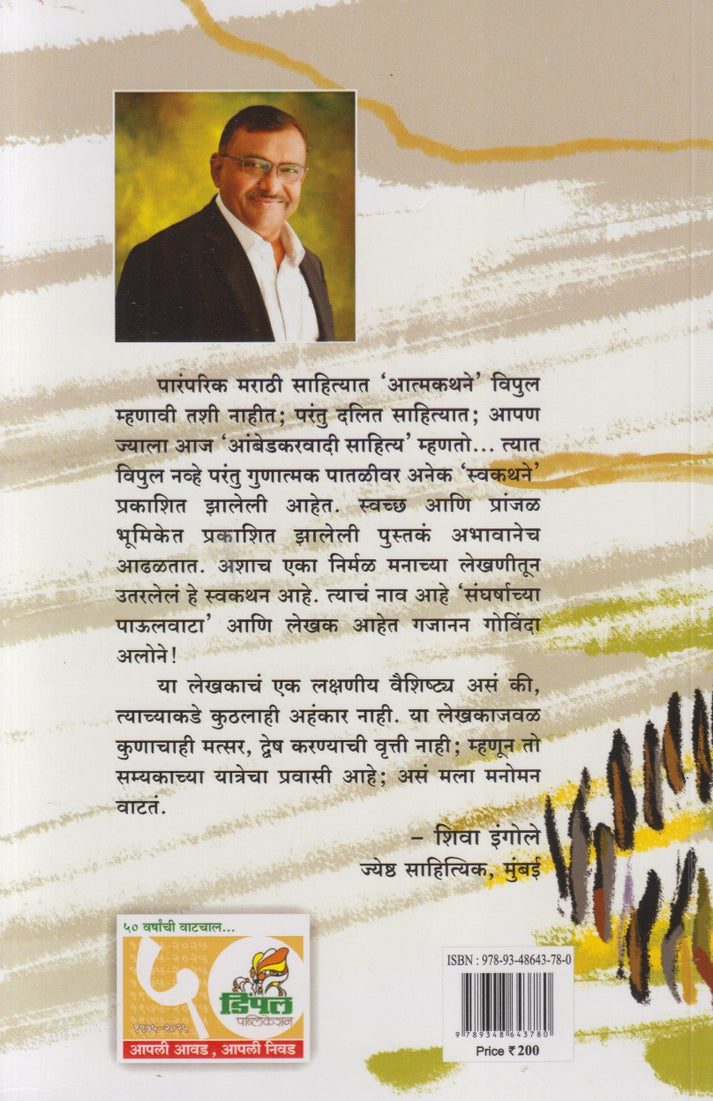 पारंपरिक मराठी साहित्यात ‘आत्मकथने’ विपुल
म्हणावी तशी नाहीत; परंतु दलित साहित्यात; आपण
ज्याला आज ‘आंबेडकरवादी साहित्य’ म्हणतो... त्यात
विपुल नव्हे परंतु गुणात्मक पातळीवर अनेक ‘स्वकथने’
प्रकाशित झालेली आहेत. स्वच्छ आणि प्रांजळ
भूमिकेत प्रकाशित झालेली पुस्तकं अभावानेच
आढळतात. अशाच एका निर्मळ मनाच्या लेखणीतून
उतरलेलं हे स्वकथन आहे. त्याचं नाव आहे ‘संघर्षाच्या
पाऊलवाटा’ आणि लेखक आहेत गजानन गोविंदा
अलोने!
या लेखकाचं एक लक्षणीय वैशिष्ट्य असं की,
त्याच्याकडे कुठलाही अहंकार नाही. या लेखकाजवळ
कुणाचाही मत्सर, द्वेष करण्याची वृत्ती नाही; म्हणून तो
सम्यकाच्या यात्रेचा प्रवासी आहे; असं मला मनोमन
वाटतं.
– शिवा इंगोले
ज्येष्ठ साहित्यिक, मुंबई
५० वर्षांची वाटचाल...
५०
१९७५-२०२५
डिंपल
पब्लिकेशन
आपली आवड, आपली निवड
ISBN : 978-93-48643-78-0
9 789348 643780
Price ₹ 200